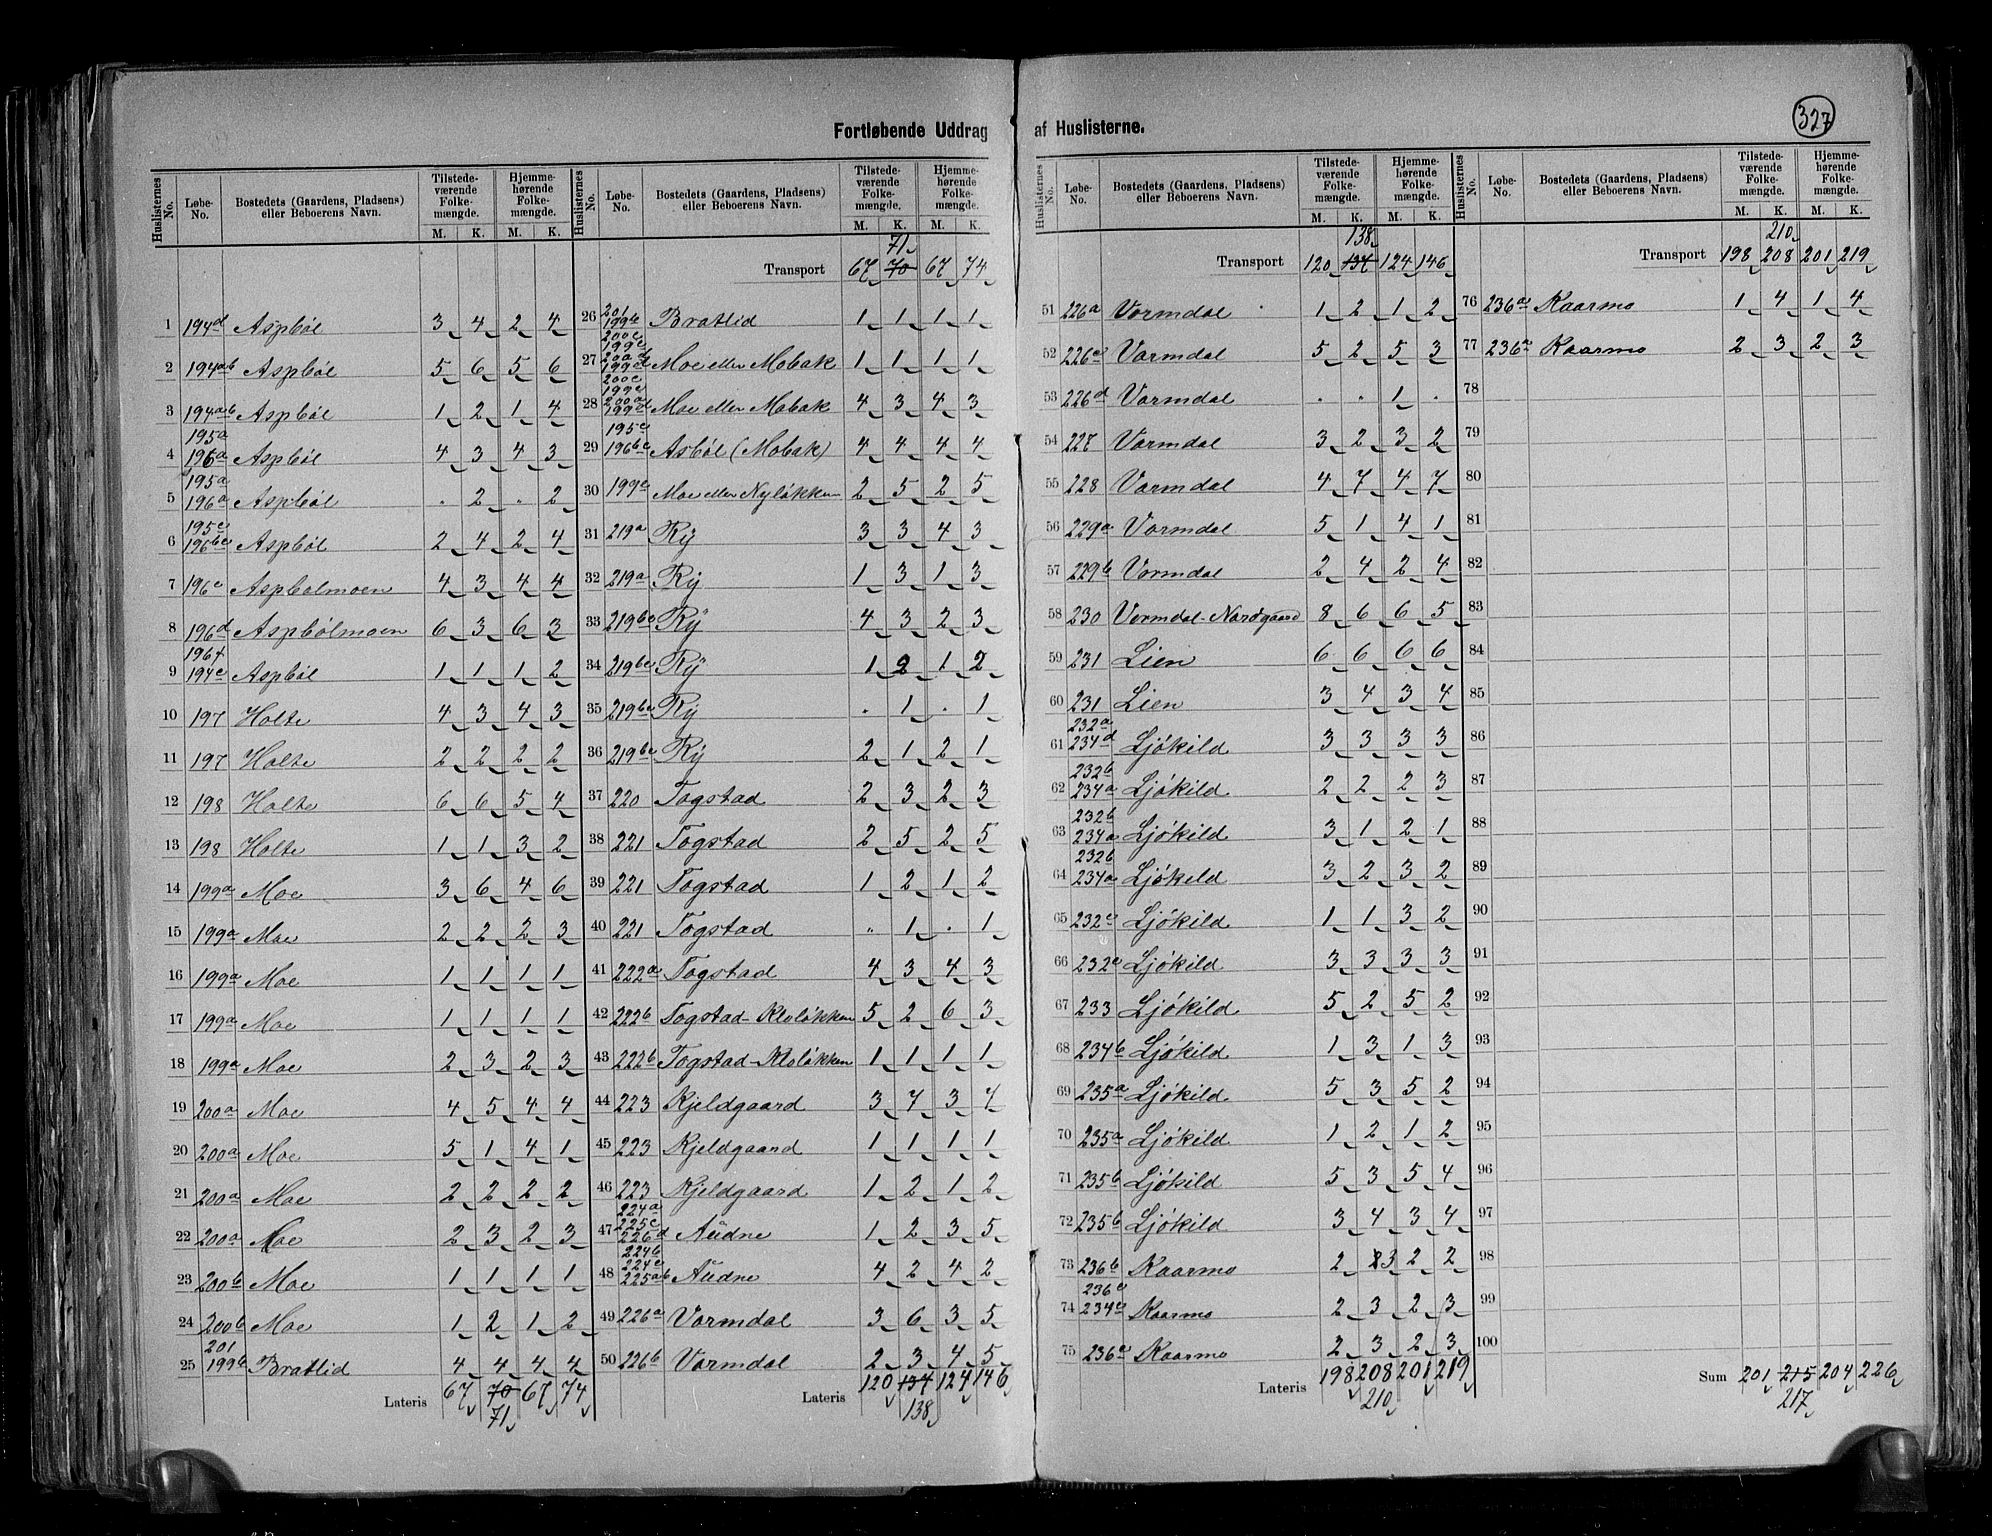 327
Fortløbende Uddrag af Huslisterne.
Huslisternes No. Løbe-No. Bostedets (Gaardens, Pladsens) eller Beboerens Navn. Tilstedeværende Folkemængde. Hjemmehørende Folkemængde.
M. K. M. K.
1 194d Aspböl 3 4 2 4
2 194ab Aspböl 5 6 5 6
3 194ab Aspböl 1 2 1 4
4 195a 196a Aspböl 4 3 4 3
5 195a 196a Aspböl . 2 . 2
6 195c 196bc Aspböl 2 4 2 4
7 196c Aspbölmoen 4 3 4 4
8 196d Aspbölmoen 6 3 6 3
9 196f 194c Aspböl 1 1 1 2
10 197 Holte 4 3 4 3
11 197 Holte 2 2 2 2
12 198 Holte 6 6 5 4
13 198 Holte 1 1 3 2
14 199a Moe 3 6 4 6
15 199a Moe 2 2 2 3
16 199a Moe 1 1 1 1
17 199a Moe 1 1 1 1
18 199a Moe 2 3 2 3
19 200a Moe 4 5 4 4
20 200a Moe 5 1 4 1
21 200a Moe 2 2 2 2
22 200a Moe 2 3 2 3
23 200b Moe 1 1 1 1
24 200b Moe 1 2 1 2
25 201 199b Brattlid 4 4 4 4
Lateris 67 70 67 74
71
Huslisternes No. Løbe-No. Bostedets (Gaardens, Pladsens) eller Beboerens Navn. Tilstedeværende Folkemængde. Hjemmehørende Folkemængde.
M. K. M. K.
71
Transport 67 70 67 74
26 201 199b Brattlid 1 1 1 1
27 200c 199c 200d 199d Moe eller Mobak 1 1 1 1
28 200c 199c 200d 199d Moe eller Mobak 4 3 4 3
29 195c 196bc Asböl (Mobak) 4 4 4 4
30 199c Moe eller Nyløkken 2 5 2 5
31 219a Ry 3 3 4 3
32 219a Ry 1 3 1 3
33 219bc Ry 4 3 2 3
34 219bc Ry 1 2 1 2
35 219bc Ry . 1 . 1
36 219bc Ry 2 1 2 1
37 220 Togstad 2 3 2 3
38 221 Togstad 2 5 2 5
39 221 Togstad 1 2 1 2
40 221 Togstad " 1 . 1
41 222a Togstad 4 3 4 3
42 222b Togstad-Kloløkken 5 2 6 3
43 222b Togstad-Kloløkken 1 1 1 1
44 223 Kjeldgaard 3 7 3 7
45 223 Kjeldgaard 1 1 1 1
46 223 Kjeldgaard 1 2 1 2
47 224a 225c 226d Audne 1 2 3 5
48 224b 224c 225ab Audne 4 2 4 2
49 226a Vormdal 3 6 3 5
50 226b Vormdal 2 3 4 5
Lateris 120 137 124 146
138
Huslisternes No. Løbe-No. Bostedets (Gaardens, Pladsens) eller Beboerens Navn. Tilstedeværende Folkemængde. Hjemmehørende Folkemængde.
M. K. M. K.
138
Transport 120 137 124 146
51 226a Vormdal 1 2 1 2
52 226c Vormdal 5 2 5 3
53 226d Vormdal . . 1 .
54 227 Vormdal 3 2 3 2
55 228 Vormdal 4 7 4 7
56 229a Vormdal 5 1 4 1
57 229b Vormdal 2 4 2 4
58 230 Vormdal-Nordgaard 8 6 6 5
59 231 Lien 6 6 6 6
60 231 Lien 3 4 3 4
61 232a 234d Ljökild 3 3 3 3
62 232b 234a Ljökild 2 2 2 3
63 232b 234a Ljökild 3 1 2 1
64 232b 234a Ljökild 3 2 3 2
65 232c Ljökild 1 1 3 2
66 232a Ljökild 3 3 3 3
67 233 Ljökild 5 2 5 2
68 234b Ljökild 1 3 1 3
69 235a Ljökild 5 3 5 2
70 235a Ljökild 1 2 1 2
71 235b Ljökild 5 3 5 4
72 235b Ljökild 3 4 3 4
73 236b Kaarmo 2 3 2 2
74 236c 234c Kaarmo 2 3 2 3
75 236c Kaarmo 2 3 2 3
Lateris 198 208 201 219
210
Huslisternes No. Løbe-No. Bostedets (Gaardens, Pladsens) eller Beboerens Navn. Tilstedeværende Folkemængde. Hjemmehørende Folkemængde.
M. K. M. K.
210
Transport 198 208 201 219
76 236a Kaarmo 1 4 1 4
77 236a Kaarmo 2 3 2 3
78
79
80
81
82
83
84
85
86
87
88
89
90
91
92
93
94
95
96
97
98
99
100
Sum 201 215 204 226
217